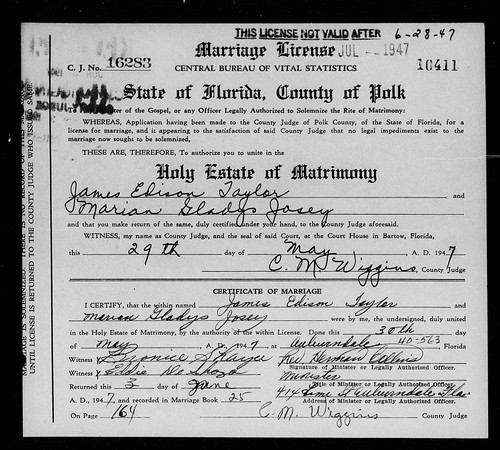 THIS LICENSE NOT VALID AFTER 6-28-47
Marriage License JUL 1947
C. J. No. 16283 CENTRAL BUREAU OF VITAL STATISTICS 10411
State of Florida, County of Polk
of the Gospel, or any Officer Legally Authorized to Solemnize the Rite of Matrimony:
WHEREAS, Application having been made to the County Judge of Polk County, of the State of Florida, for a
license for marriage, and it appearing to the satisfaction of said County Judge that no legal impediments exist to the
marriage now sought to be solemnized,
THESE ARE, THEREFORE, To authorize you to unite in the
Holy Estate of Matrimony
James Edison Taylor and
Marian Gladys Josey
and that you make return of the same, duly certified under your hand, to the County Judge aforesaid.
WITNESS, my name as County Judge, and the seal of said Court, at the Court House in Bartow, Florida,
this 29th day of May, A. D. 1947
C. M. Wiggins, County Judge
CERTIFICATE OF MARRIAGE
I CERTIFY, that the within named James Edison Taylor and
Marian Gladys Josey were by me, the undersigned, duly united
in the Holy Estate of Matrimony, by the authority of the within License. Done this 30th day
of May, A. D. 1947 at Auburndale 40-563, Florida
Witness Rev Herman
Signature of Minister or Legally Authorized Officer.
Witness Minister
Title of Minister or Legally Authorized Officer.
Returned this 3 day of June 414 Auburndale Fla.
Address of Minister or Legally Authorized Officer.
A. D., 1947, and recorded in Marriage Book 25
On Page 164 C. M. Wiggins County Judge
MARRIAGE IS SOLEMNIZED. THERE IS NO RECORD OF THIS
UNTIL LICENSE IS RETURNED TO THE COUNTY JUDGE WHO ISSUED SAME